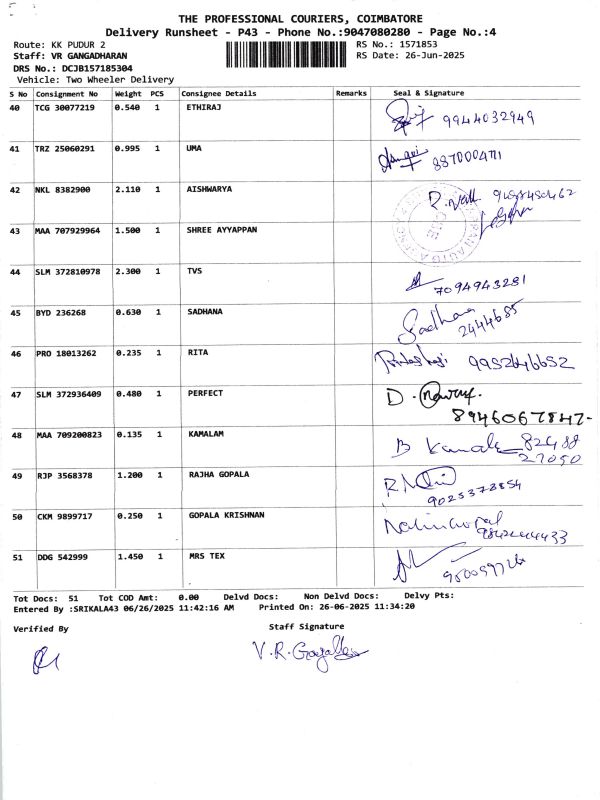 THE PROFESSIONAL COURIERS, COIMBATORE
Delivery Runsheet - P43 - Phone No.:9047080280 - Page No.:4
Route: KK PUDUR 2 RS No.: 1571853
Staff: VR GANGADHARAN RS Date: 26-Jun-2025
DRS No.: DCJB157185304
Vehicle: Two Wheeler Delivery
S No Consignment No Weight PCS Consignee Details Remarks Seal & Signature
40 TCG 30077219 0.540 1 ETHIRAJ 9944032949
41 TRZ 25060291 0.995 1 UMA
42 NKL 8382900 2.110 1 AISHWARYA
43 MAA 707929964 1.500 1 SHREE AYYAPPAN
44 SLM 372810978 2.300 1 TVS 7094943281
45 BYD 236268 0.630 1 SADHANA Sadhana
2444685
46 PRO 18013262 0.235 1 RITA 9952646652
47 SLM 372936409 0.480 1 PERFECT D.
8946067847-
48 MAA 709200823 0.135 1 KAMALAM B Kamala 82488
27050
49 RJP 3568378 1.200 1 RAJHA GOPALA
9025373854
50 CKM 9899717 0.250 1 GOPALA KRISHNAN
9842444433
51 DDG 542999 1.450 1 MRS TEX
Tot Docs: 51 Tot COD Amt: 0.00 Delvd Docs: Non Delvd Docs: Delvy Pts:
Entered By :SRIKALA43 06/26/2025 11:42:16 AM Printed On: 26-06-2025 11:34:20
Verified By Staff Signature
V.R.